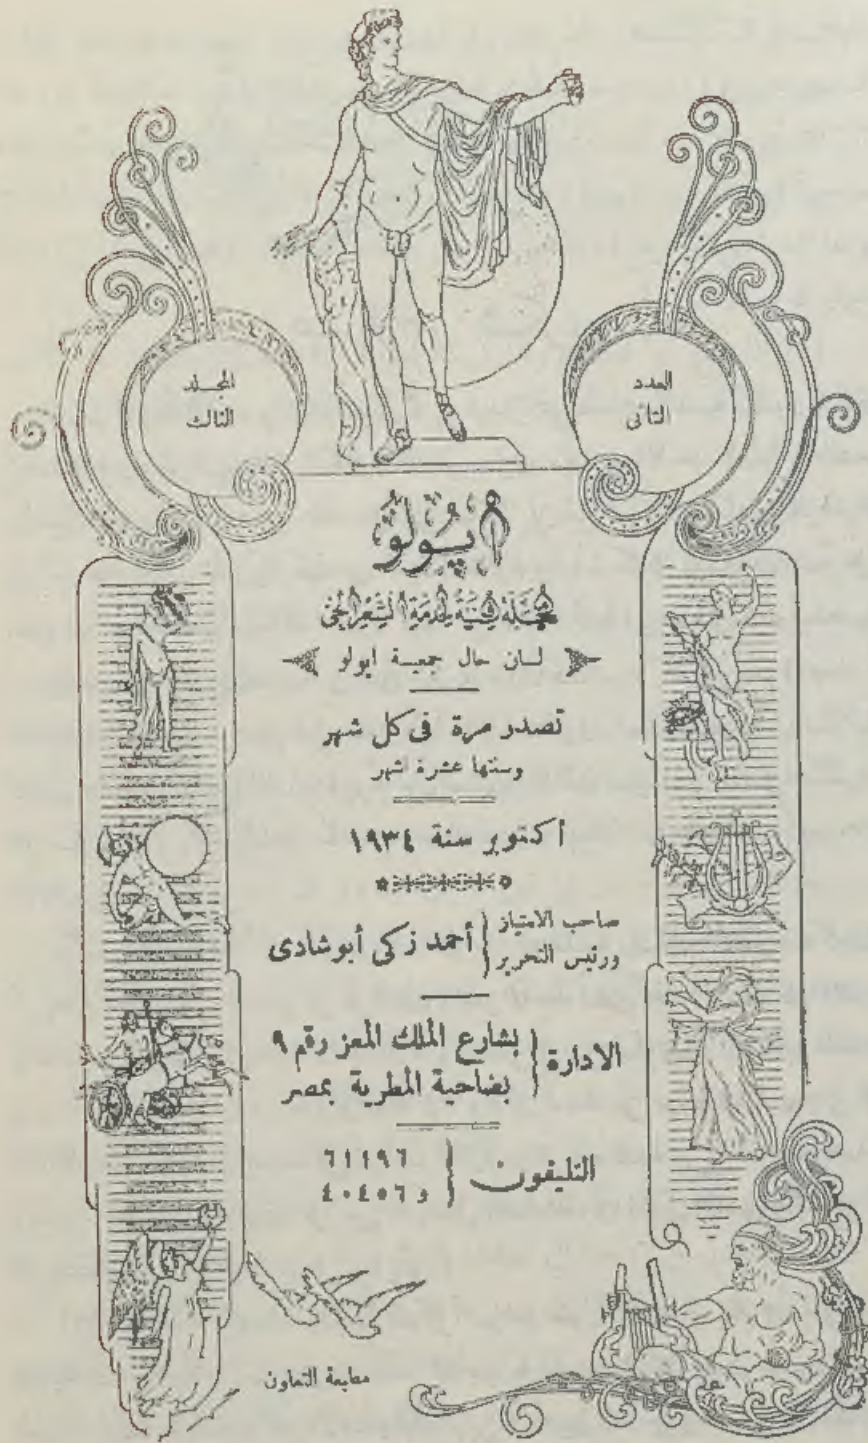 العدد
الثانى
المجلد
الثالث
أپولو
مجلة فنية لخدمة الشعر الحى
لسان حال جمعية ابولو
تصدر مرة فى كل شهر
وسنتها عشرة اشهر
أكتوبر سنة ١٩٣٤
صاحب الامتياز
ورئيس التحرير } أحمد زكى أبو شادى
الادارة { بشارع الملك المعز رقم ٩
بضاحية المطرية بمصر
التليفون { ٦١١٩٦
و ٤٠٤٥٦
مطبعة التعاون